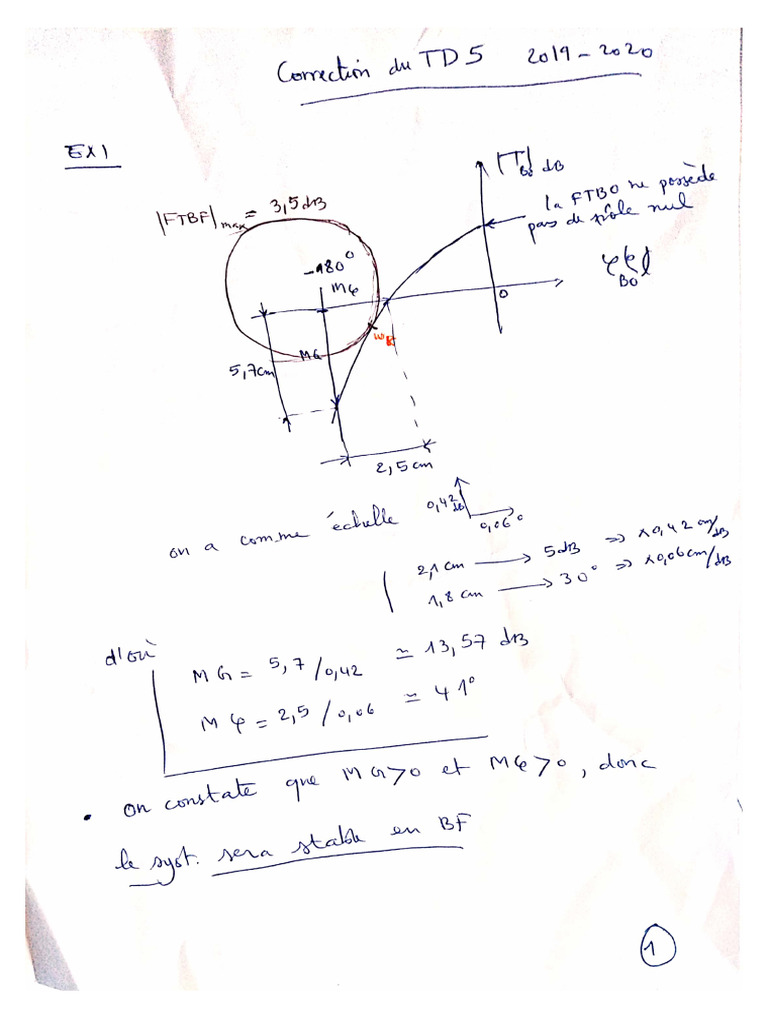 Correction du TD 5 2019-2020
EX1
|T|BO dB
la FTBO ne possède
pas de pôle nul
|FTBF|max = 3,5 dB
-180°
Mφ
0
BO
ωR
MG
5,7cm
2,5cm
on a comme échelle 0,42 dB
0,06°
2,1 cm → 5dB ⇒ x0,42 cm/dB
1,8 cm → 30° ⇒ x0,06cm/dB
d'où
MG = 5,7/0,42 ≃ 13,57 dB
Mφ = 2,5/0,06 ≃ 41°
• on constate que MG>0 et Mφ>0, donc
le syst. sera stable en BF
1